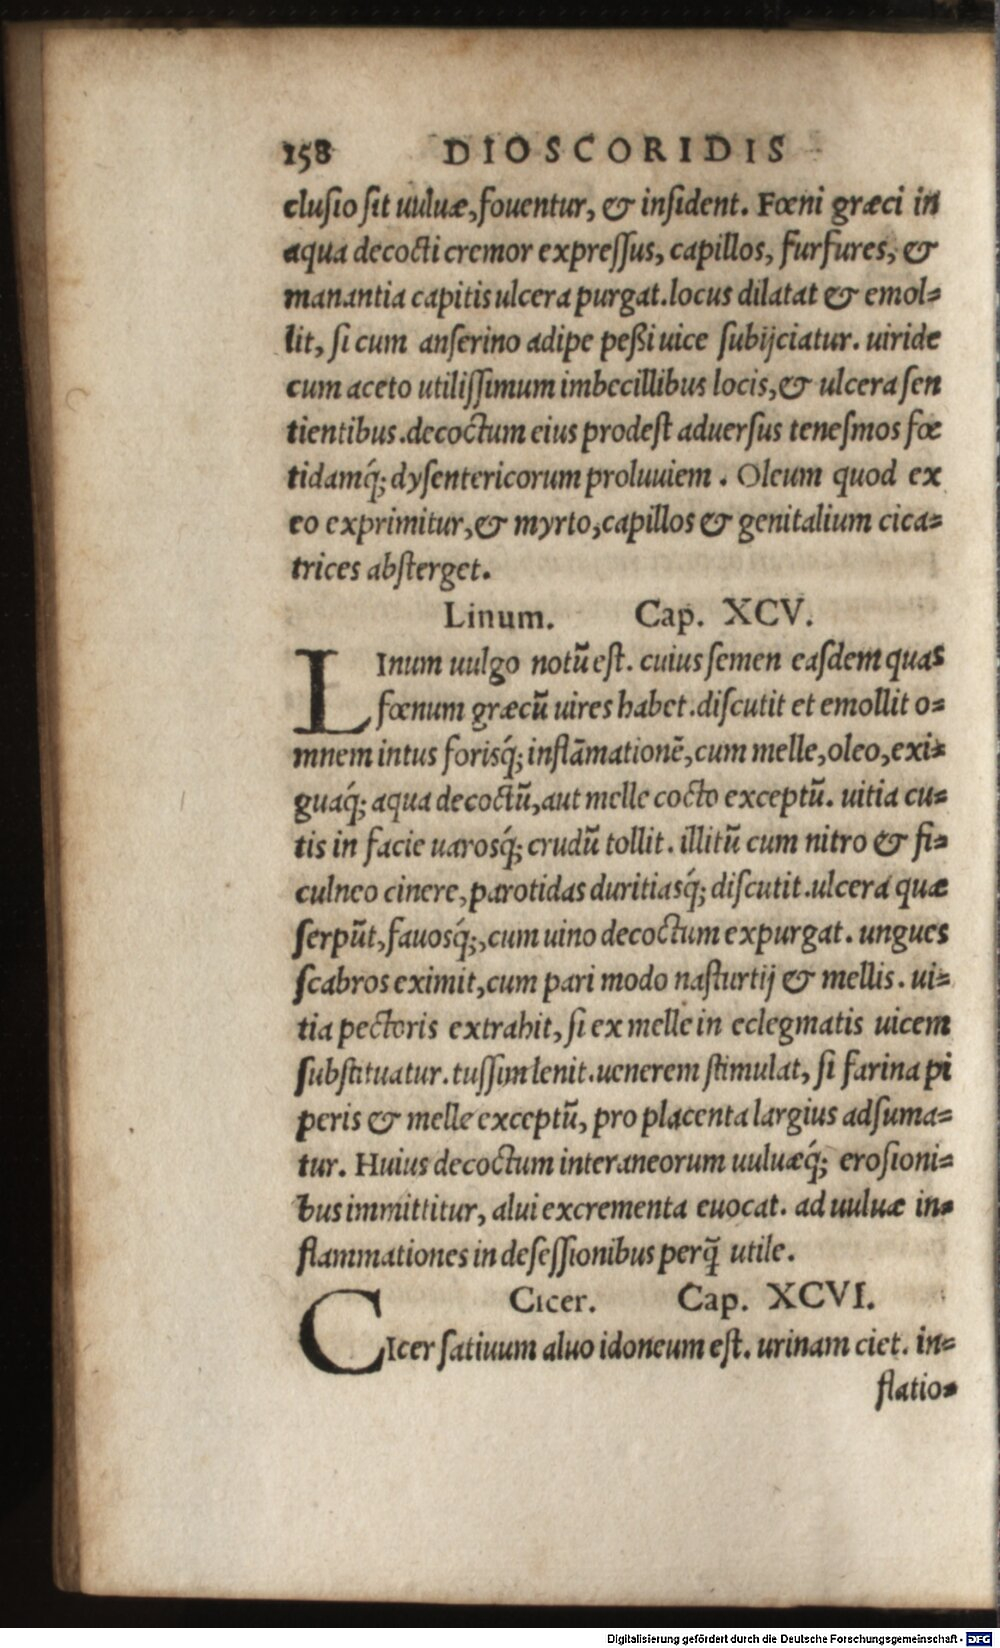 158 DIOSCORIDIS
clusio sit uuluæ, fouentur, & insident. Fœni græci in
aqua decocti cremor expressus, capillos, furfures, &
manantia capitis ulcera purgat. locus dilatat & emol=
lit, si cum anserino adipe peßi uice subijciatur. uiride
cum aceto utilissimum imbecillibus locis, & ulcera sen
tientibus. decoctum eius prodest aduersus tenesmos fœ
tidamq́; dysentericorum proluuiem. Oleum quod ex
eo exprimitur, & myrto, capillos & genitalium cica=
trices absterget.
Linum. Cap. XCV.
LInum uulgo notũ est. cuius semen easdem quas
fœnum græcũ uires habet. discutit et emollit o=
mnem intus forisq́; inflãmationẽ, cum melle, oleo, exi=
guaq́; aqua decoctũ, aut melle cocto exceptũ. uitia cu=
tis in facie uarosq́; crudũ tollit. illitũ cum nitro & fi=
culneo cinere, parotidas duritiasq́; discutit. ulcera quæ
serpũt, fauosq́;, cum uino decoctum expurgat. ungues
scabros eximit, cum pari modo nasturtij & mellis. ui=
tia pectoris extrahit, si ex melle in eclegmatis uicem
substituatur. tussim lenit. uenerem stimulat, si farina pi
peris & melle exceptũ, pro placenta largius adsuma=
tur. Huius decoctum interaneorum uuluæq́; erosioni=
bus immittitur, alui excrementa euocat. ad uuluæ in=
flammationes in desessionibus perq̃ utile.
Cicer. Cap. XCVI.
CIcer satiuum aluo idoneum est. urinam ciet. in=
flatio=
Digitalisierung gefördert durch die Deutsche Forschungsgemeinschaft - DFG